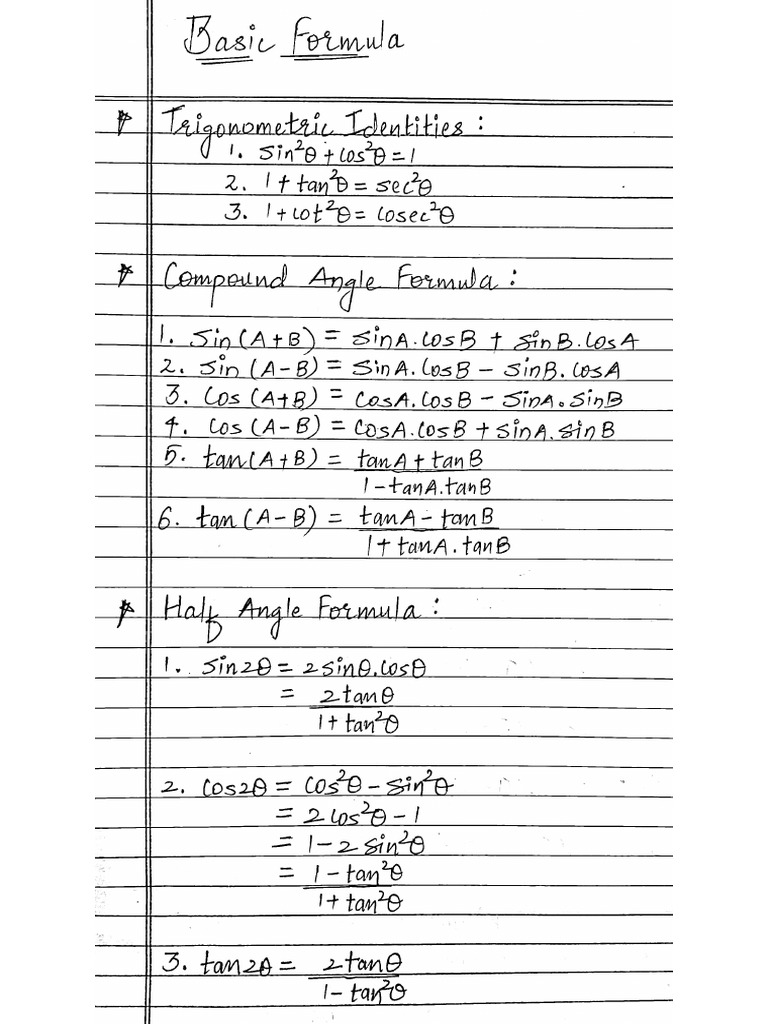 Basic Formula
* Trigonometric Identities :
1. sin²θ + cos²θ = 1
2. 1 + tan²θ = sec²θ
3. 1 + cot²θ = cosec²θ
* Compound Angle Formula :
1. sin(A+B) = sinA.cosB + sinB.cosA
2. sin(A-B) = sinA.cosB - sinB.cosA
3. cos(A+B) = cosA.cosB - sinA.sinB
4. cos(A-B) = cosA.cosB + sinA.sinB
5. tan(A+B) = tanA + tanB
1 - tanA.tanB
6. tan(A-B) = tanA - tanB
1 + tanA.tanB
* Half Angle Formula :
1. sin2θ = 2sinθ.cosθ
= 2tanθ
1 + tan²θ
2. cos2θ = cos²θ - sin²θ
= 2cos²θ - 1
= 1 - 2sin²θ
= 1 - tan²θ
1 + tan²θ
3. tan2θ = 2tanθ
1 - tan²θ